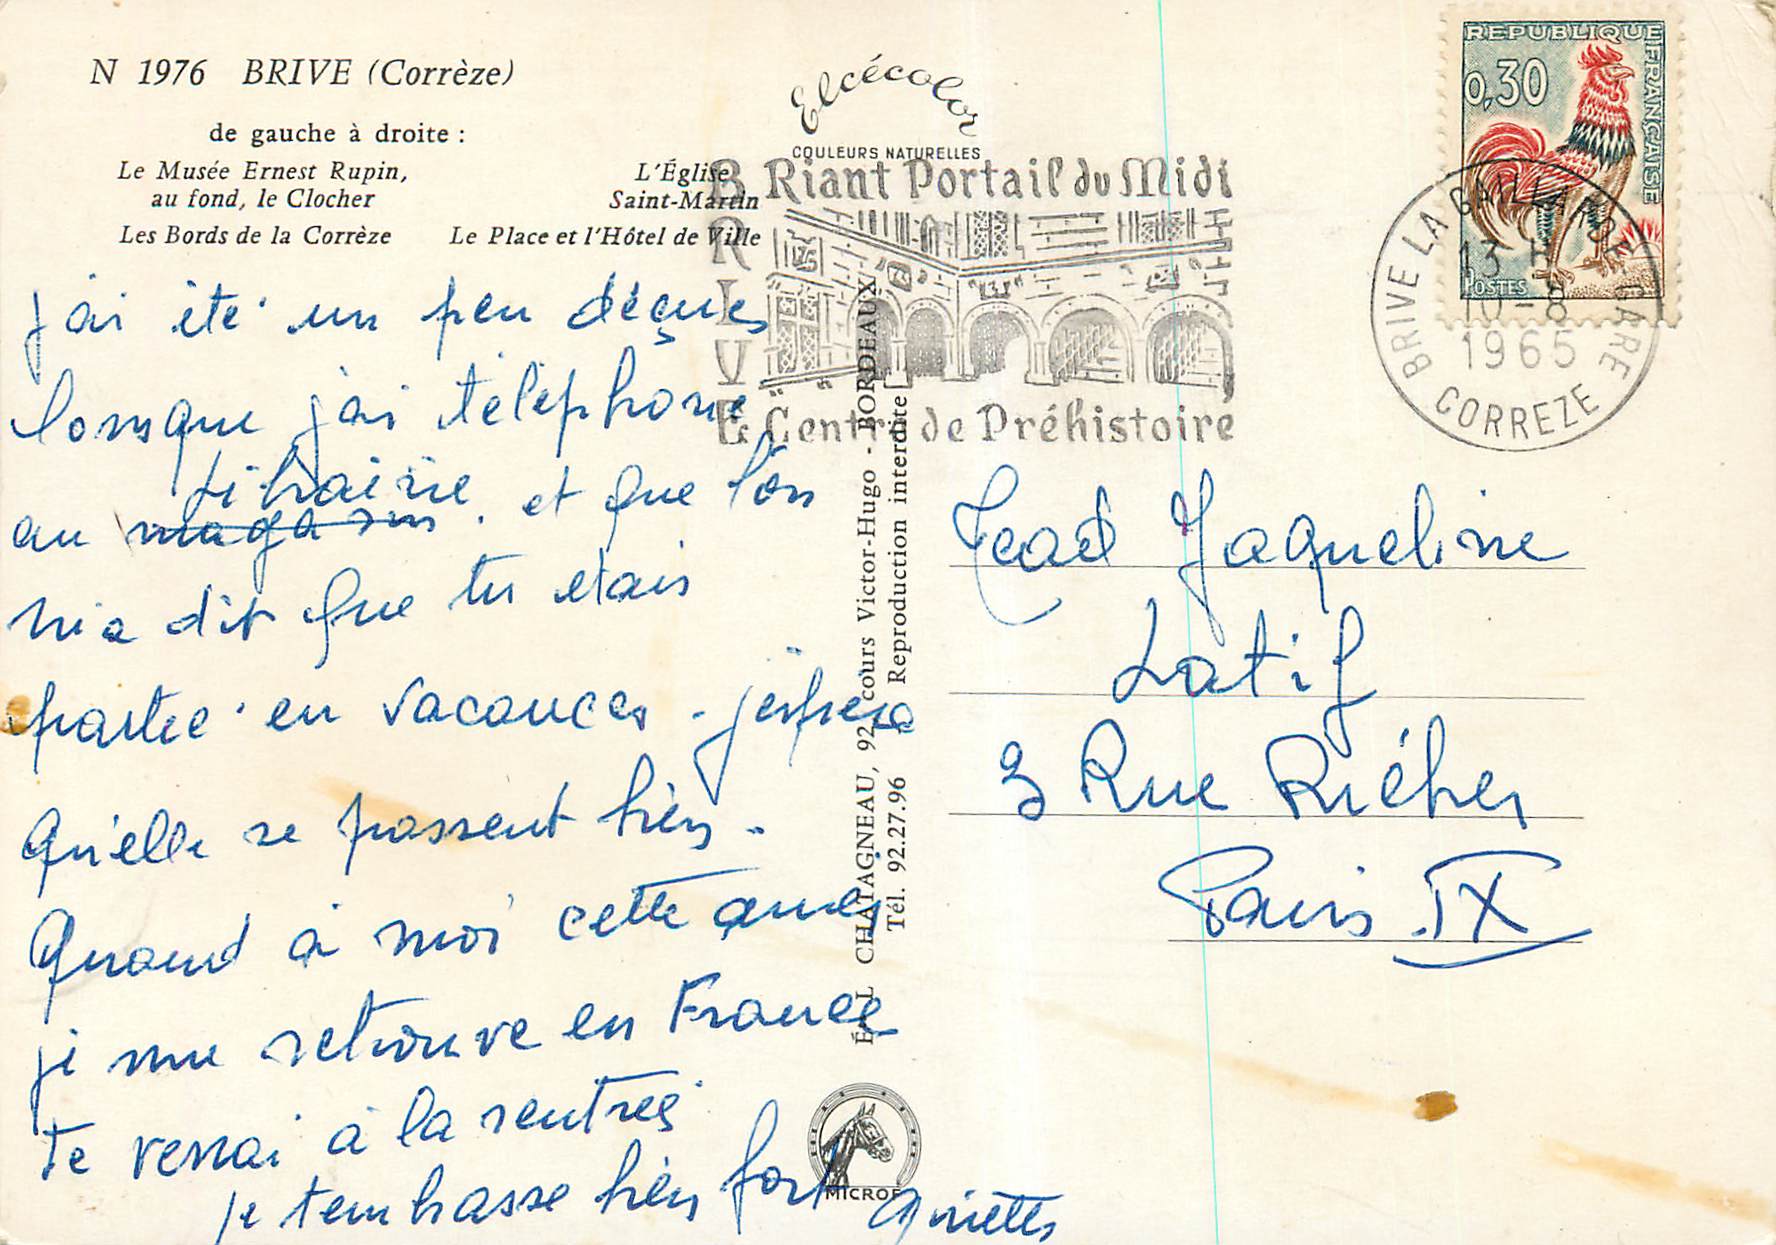 N 1976 BRIVE (Corrèze)
de gauche à droite :
Le Musée Ernest Rupin,
au fond, le Clocher
L'Église
Saint-Martin
Les Bords de la Corrèze
Le Place et l'Hôtel de Ville
Elcécolor
COULEURS NATURELLES
BRIVE
Riant Portail du Midi
Centre de Préhistoire
REPUBLIQUE FRANÇAISE
0,30
POSTES
BRIVE LA GAILLARDE GARE
13 H
10-8
1965
CORREZE
j'ai été un peu déçues
lorsque j'ai téléphone
librairie
au magasin. et que l'on
m'a dit que tu etais
partie en vacances - j'espere
qu'elle se passent bien -
Quand à moi cette année
je me retrouve en France
te verrai à la rentrée
je t'embrasse bien fort
ÉD. L CHATAGNEAU, 92 cours Victor-Hugo - BORDEAUX
Tél. 92.27.96 Reproduction interdite
MICRO
Jaqueline
Latif
3 Rue Riéher
Paris IX